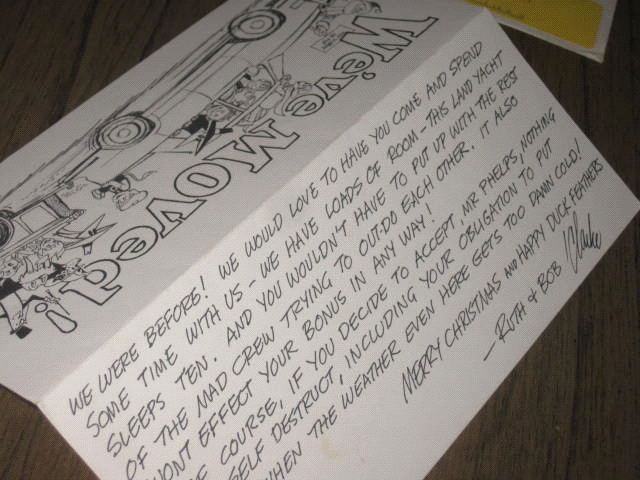 We've Moved!
WE WERE BEFORE! WE WOULD LOVE TO HAVE YOU COME AND SPEND
SOME TIME WITH US - WE HAVE LOADS OF ROOM - THIS LAND YACHT
SLEEPS TEN. AND YOU WOULDN'T HAVE TO PUT UP WITH THE REST
OF THE MAD CREW TRYING TO OUT-DO EACH OTHER. IT ALSO
WONT EFFECT YOUR BONUS IN ANY WAY!
OF COURSE, IF YOU DECIDE TO ACCEPT, MR PHELPS, NOTHING
SELF DESTRUCT, INCLUDING YOUR OBLIGATION TO PUT
WHEN THE WEATHER EVEN HERE GETS TOO DAMN COLD!
MERRY CHRISTMAS AND HAPPY DUCK FEATHERS
- RUTH & BOB Clarke